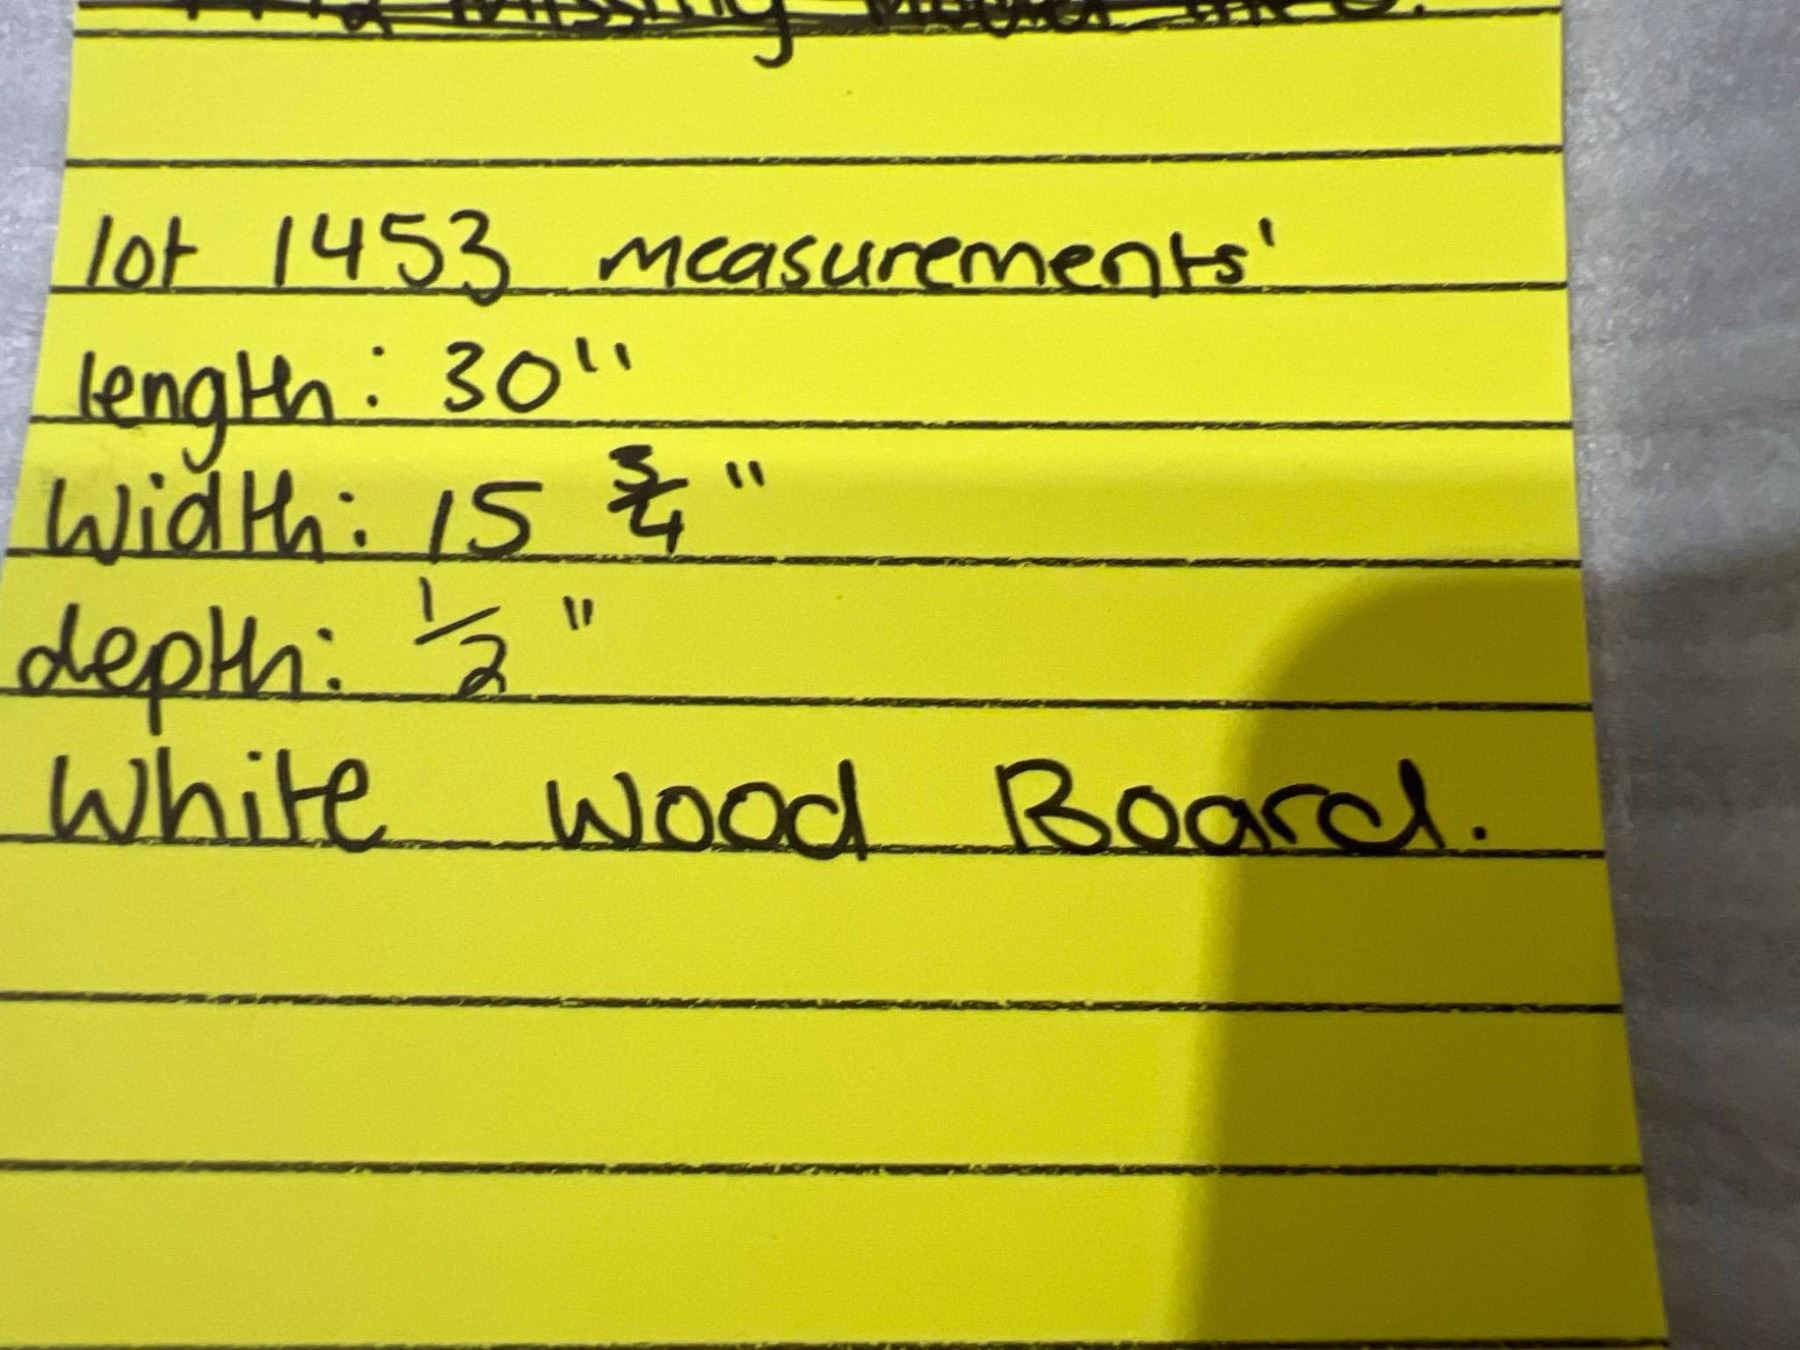 missing
lot 1453 measurements'
length: 30"
Width: 15 3/4"
depth: 1/2"
White Wood Board.